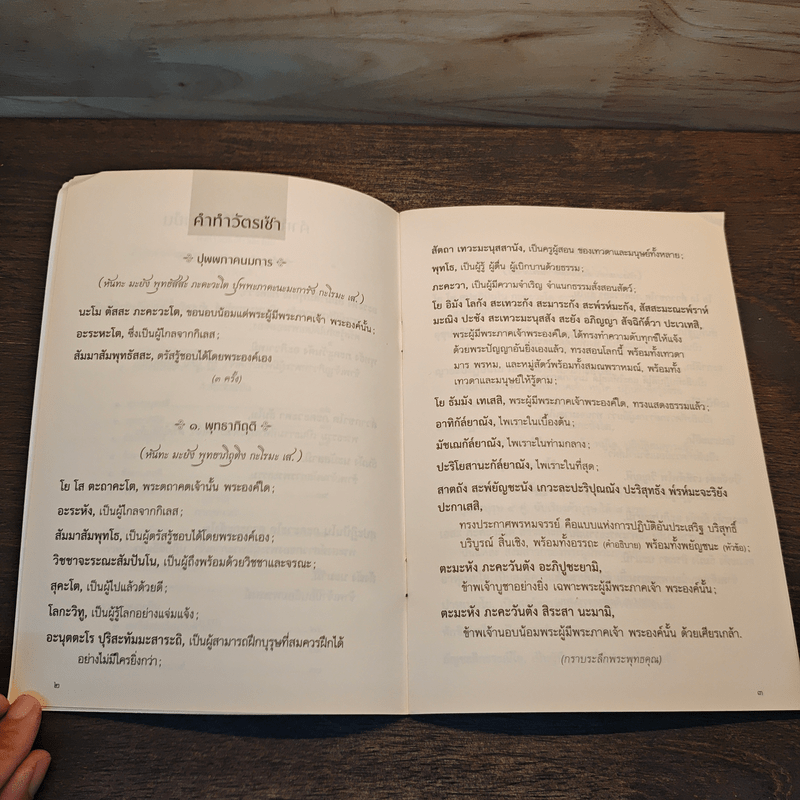 คำทำวัตรเช้า
ปุพพภาคนมการ
(หันทะ มะยัง พุทธัสสะ ภะคะวะโต ปุพพะภาคะนะมะการัง กะโรมะ เส.)
นะโม ตัสสะ ภะคะวะโต, ขอนอบน้อมแด่พระผู้มีพระภาคเจ้า พระองค์นั้น;
อะระหะโต, ซึ่งเป็นผู้ไกลจากกิเลส;
สัมมาสัมพุทธัสสะ, ตรัสรู้ชอบได้โดยพระองค์เอง
(๓ ครั้ง)
๑. พุทธาภิถุติ
(หันทะ มะยัง พุทธาภิถุติง กะโรมะ เส.)
โย โส ตะถาคะโต, พระตถาคตเจ้านั้น พระองค์ใด;
อะระหัง, เป็นผู้ไกลจากกิเลส;
สัมมาสัมพุทโธ, เป็นผู้ตรัสรู้ชอบได้โดยพระองค์เอง;
วิชชาจะระณะสัมปันโน, เป็นผู้ถึงพร้อมด้วยวิชชาและจรณะ;
สุคะโต, เป็นผู้ไปแล้วด้วยดี;
โลกะวิทู, เป็นผู้รู้โลกอย่างแจ่มแจ้ง;
อะนุตตะโร ปุริสะทัมมะสาระถิ, เป็นผู้สามารถฝึกบุรุษที่สมควรฝึกได้
อย่างไม่มีใครยิ่งกว่า;
๒
สัตถา เทวะมะนุสสานัง, เป็นครูผู้สอน ของเทวดาและมนุษย์ทั้งหลาย;
พุทโธ, เป็นผู้รู้ ผู้ตื่น ผู้เบิกบานด้วยธรรม;
ภะคะวา, เป็นผู้มีความจำเริญ จำแนกธรรมสั่งสอนสัตว์;
โย อิมัง โลกัง สะเทวะกัง สะมาระกัง สะพ๎รห๎มะกัง, สัสสะมะณะพ๎ราห๎
มะณิง ปะชัง สะเทวะมะนุสสัง สะยัง อภิญญา สัจฉิกัต๎วา ปะเวเทสิ,
พระผู้มีพระภาคเจ้าพระองค์ใด, ได้ทรงทำความดับทุกข์ให้แจ้ง
ด้วยพระปัญญาอันยิ่งเองแล้ว, ทรงสอนโลกนี้ พร้อมทั้งเทวดา
มาร พรหม, และหมู่สัตว์พร้อมทั้งสมณพราหมณ์, พร้อมทั้ง
เทวดาและมนุษย์ให้รู้ตาม;
โย ธัมมัง เทเสสิ, พระผู้มีพระภาคเจ้าพระองค์ใด, ทรงแสดงธรรมแล้ว;
อาทิกัล๎ยาณัง, ไพเราะในเบื้องต้น;
มัชเฌกัล๎ยาณัง, ไพเราะในท่ามกลาง;
ปะริโยสานะกัล๎ยาณัง, ไพเราะในที่สุด;
สาตถัง สะพ๎ยัญชะนัง เกวะละปะริปุณณัง ปะริสุทธัง พ๎รห๎มะจะริยัง
ปะกาเสสิ,
ทรงประกาศพรหมจรรย์ คือแบบแห่งการปฏิบัติอันประเสริฐ บริสุทธิ์
บริบูรณ์ สิ้นเชิง, พร้อมทั้งอรรถะ (คำอธิบาย) พร้อมทั้งพยัญชนะ (หัวข้อ);
ตะมะหัง ภะคะวันตัง อะภิปูชะยามิ,
ข้าพเจ้าบูชาอย่างยิ่ง เฉพาะพระผู้มีพระภาคเจ้า พระองค์นั้น;
ตะมะหัง ภะคะวันตัง สิระสา นะมามิ,
ข้าพเจ้านอบน้อมพระผู้มีพระภาคเจ้า พระองค์นั้น ด้วยเศียรเกล้า.
(กราบระลึกพระพุทธคุณ)
๓